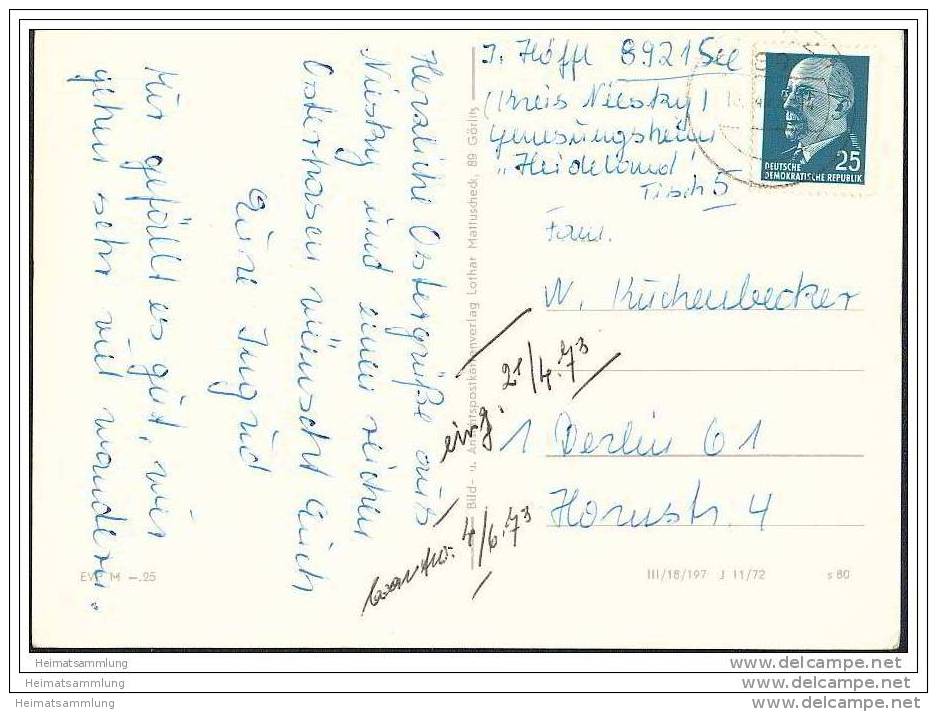 J. Höffl 8921 See
(Kreis Niesky)
Genesungsheim
"Heideland"
Tisch 5
DEUTSCHE
DEMOKRATISCHE REPUBLIK
25
Fam.
W. Küchenbecker
1 Berlin 61
Hornstr. 4
Herzliche Ostergrüße aus
Niesky und einen reichen
Osterhasen wünscht Euch
Eure Ingrid
Mir gefällt es gut, wir
gehen sehr viel wandern.
eing. 21/4.73
beantw. 4/6.73
Bild- u. Ansichtspostkartenverlag Lothar Mattuscheck, 89 Görlitz
EVP M -.25
III/18/197 J 11/72 s 80
Heimatsammlung
Heimatsammlung
Heimatsammlung
www.delcampe.net
www.delcampe.net
www.delcampe.net